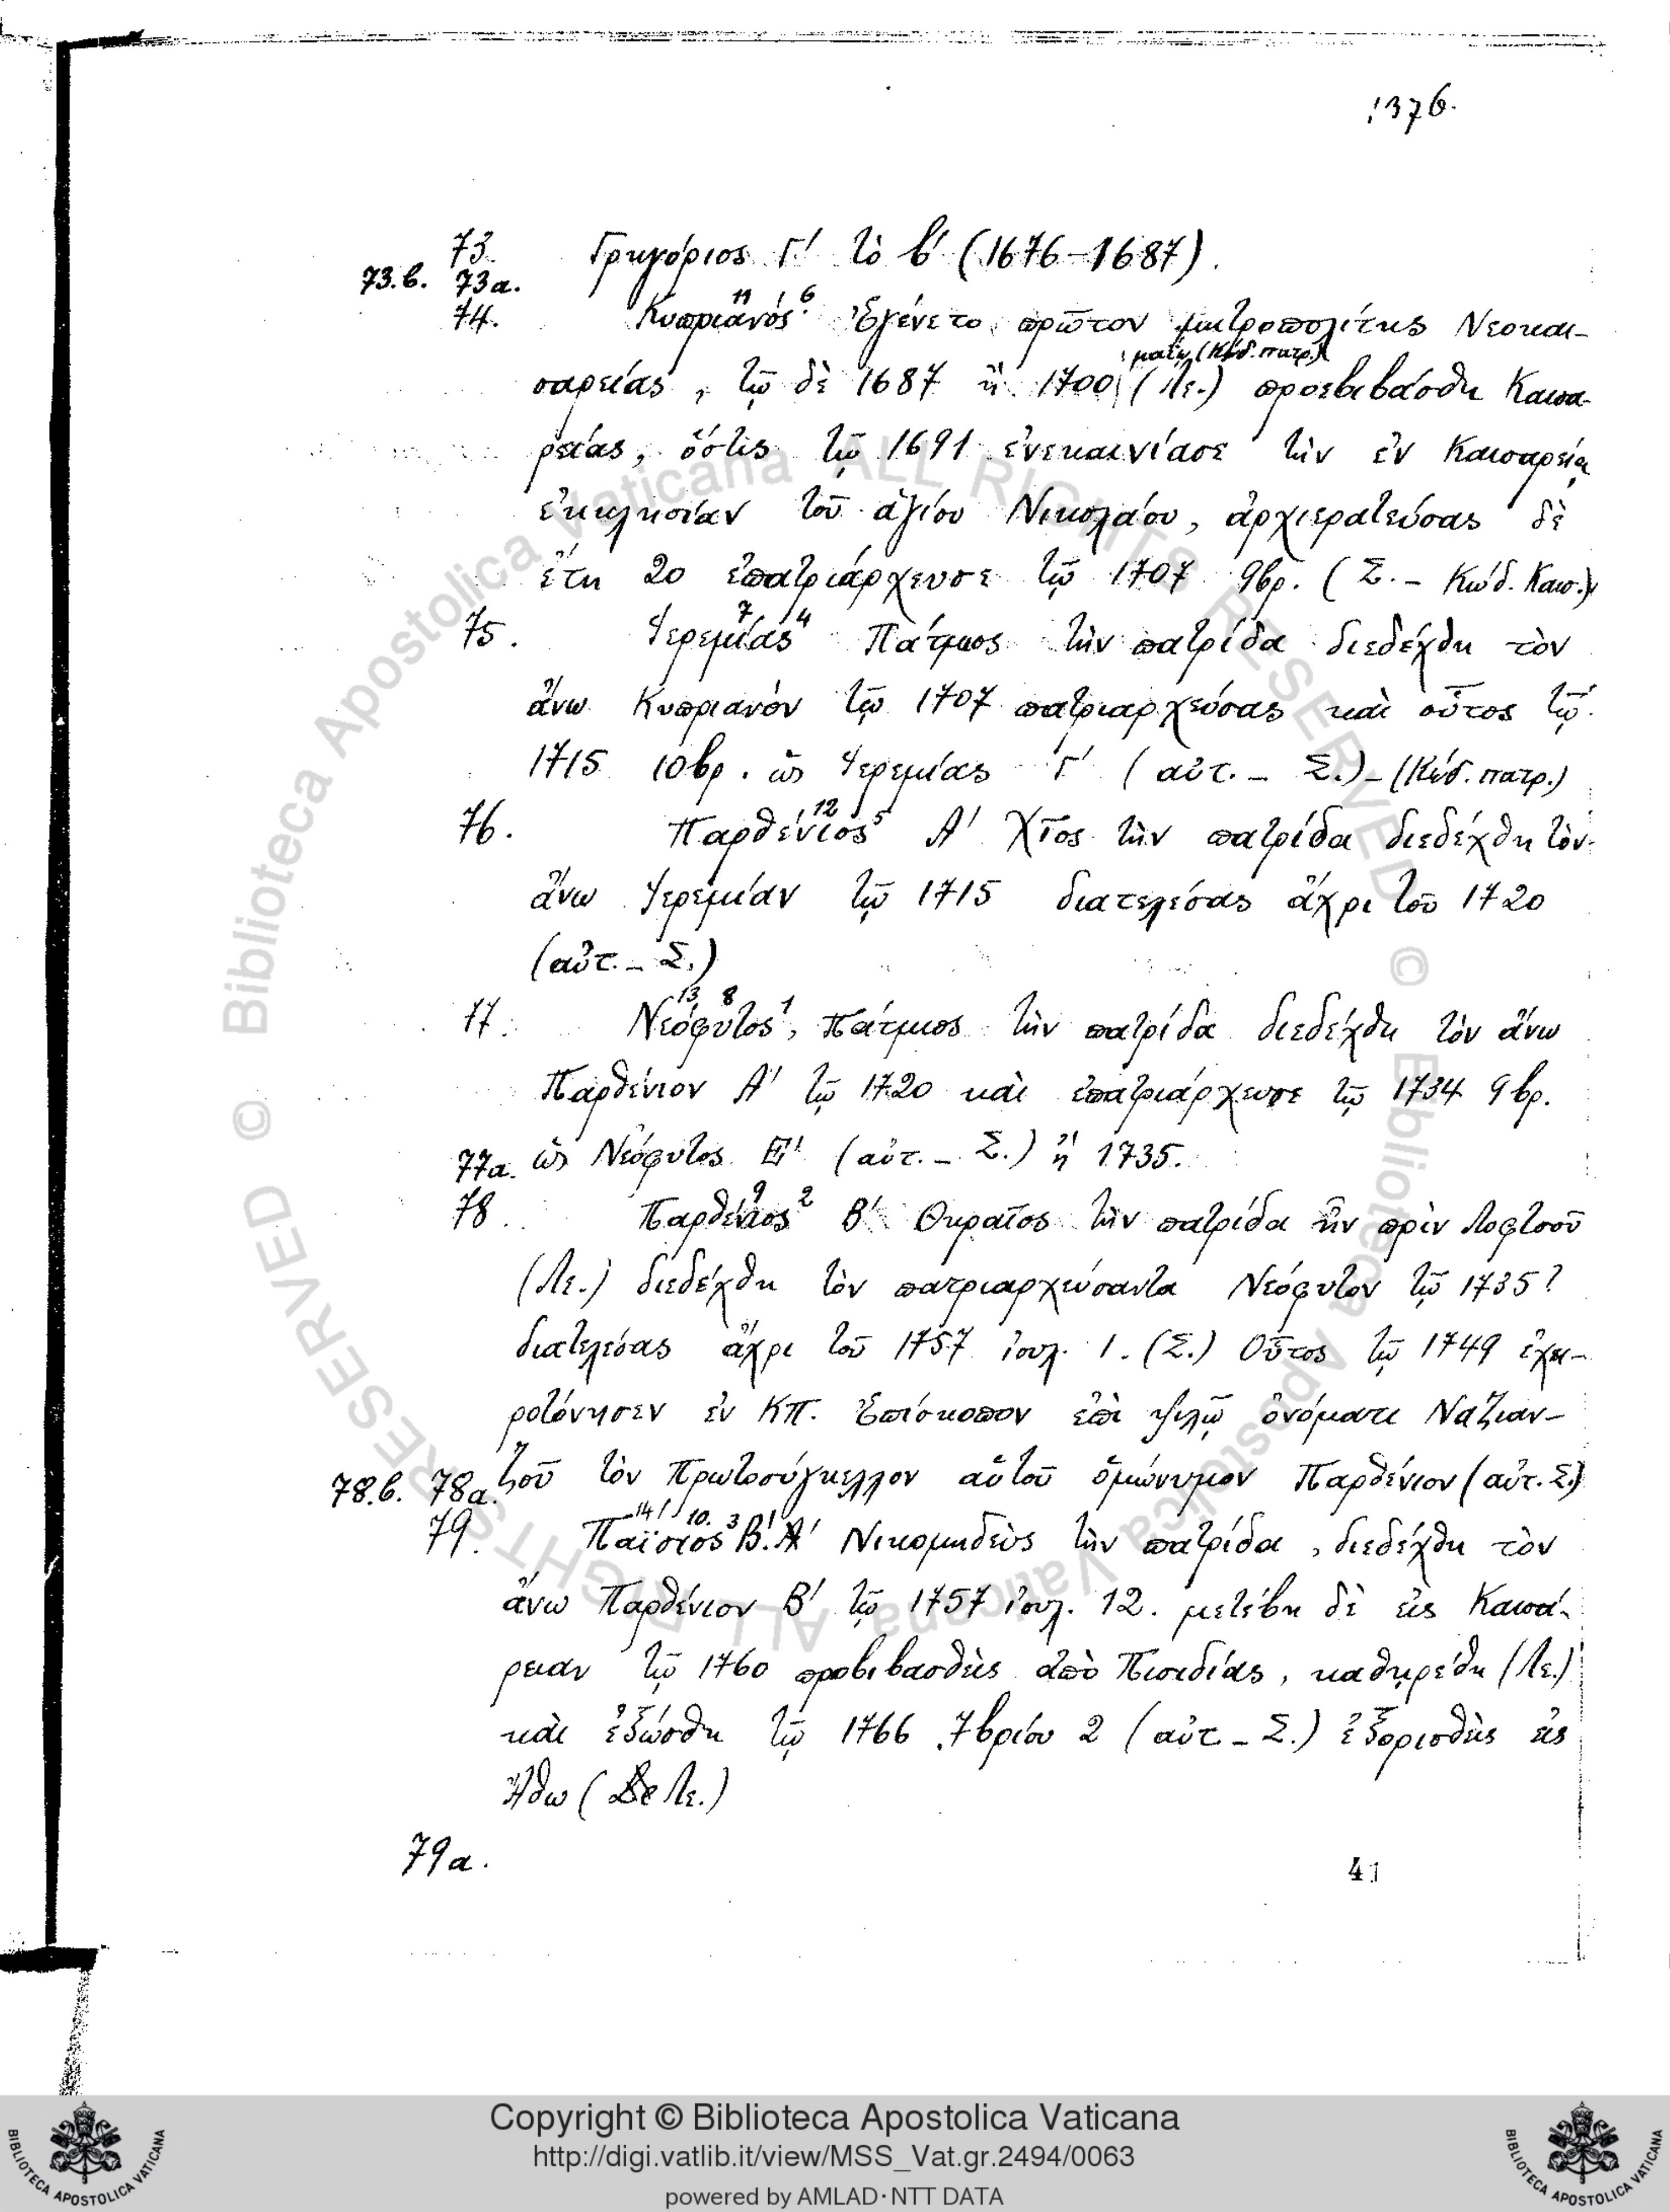 1376.
73. Γρηγόριος Γ' τὸ β' (1676-1687).
73.β. 73α.
11 6
74. Κυπριανός. Ἐγένετο πρῶτον μητροπολίτης Νεοκαι-
μαΐῳ (Κώδ. πατρ.)
σαρείας, τῷ δὲ 1687 ἢ 1700 (Λε.) προεβιβάσθη Καισα-
ρείας, ὅστις τῷ 1691 ἐνεκαινίασε τὴν ἐν Καισαρείᾳ
ἐκκλησίαν τοῦ ἁγίου Νικολάου, ἀρχιερατεύσας δὲ
ἔτη 20 ἐπατριάρχευσε τῷ 1707 9βρ. (Σ. - Κώδ. Καισ.)
7 4
75. Ἱερεμίας Πάτμιος τὴν πατρίδα διεδέχθη τὸν
ἄνω Κυπριανὸν τῷ 1707 πατριαρχεύσας καὶ οὗτος τῷ
1715 10βρ. ὡς Ἱερεμίας Γ' (αὐτ. - Σ.) - (Κώδ. πατρ.)
12 5
76. Παρθένιος Α' Χῖος τὴν πατρίδα διεδέχθη τὸν
ἄνω Ἱερεμίαν τῷ 1715 διατελέσας ἄχρι τοῦ 1720
(αὐτ. - Σ.)
13 8 1
77. Νεόφυτος, Πάτμιος τὴν πατρίδα διεδέχθη τὸν ἄνω
Παρθένιον Α' τῷ 1720 καὶ ἐπατριάρχευσε τῷ 1734 9βρ.
77α. ὡς Νεόφυτος (αὐτ. - Σ.) ἢ 1735.
9 2
78. Παρθένιος Β' Θηραῖος τὴν πατρίδα ἦν πρὶν Λοφτσοῦ
(Λε.) διεδέχθη τὸν πατριαρχεύσαντα Νεόφυτον τῷ 1735?
διατελέσας ἄχρι τοῦ 1757 ἰουλ. 1. (Σ.) Οὗτος τῷ 1749 ἐχει-
ροτόνησεν ἐν ΚΠ. Ἐπίσκοπον ἐπὶ ψιλῷ ὀνόματι Ναζιαν-
78.β. 78α. ζοῦ τὸν Πρωτοσύγκελλον αὐτοῦ ὁμώνυμον Παρθένιον (αὐτ. Σ.)
14 10. 3
79. Παΐσιος Β'. Α' Νικομηδεὺς τὴν πατρίδα, διεδέχθη τὸν
ἄνω Παρθένιον Β' τῷ 1757 ἰουλ. 12. μετέβη δὲ εἰς Καισά-
ρειαν τῷ 1760 προβιβασθεὶς ἀπὸ Πισιδίας, καθῃρέθη (Λε.)
καὶ ἐξώσθη τῷ 1766 7βρίου 2 (αὐτ - Σ.) ἐξορισθεὶς εἰς
Ἄθω (Λε.)
79α.
41
© Biblioteca Apostolica Vaticana ALL RIGHTS RESERVED © Biblioteca Apostolica Vaticana ALL RIGHTS RESERVED
Copyright © Biblioteca Apostolica Vaticana
http://digi.vatlib.it/view/MSS_Vat.gr.2494/0063
powered by AMLAD·NTT DATA
BIBLIOTECA APOSTOLICA VATICANA
BIBLIOTECA APOSTOLICA VATICANA